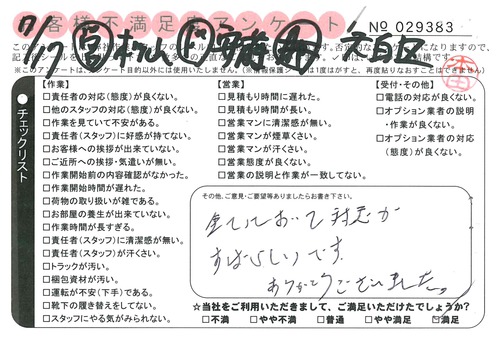 お客様不満足度アンケート
No 029383
7/7
※このアンケートは、アンケート目的以外には使用いたしません。(※情報保護シールは1度はがすと、再度貼りなおすことはできません)
チェックリスト
【作業】
□責任者の対応(態度)が良くない。
□他のスタッフの対応(態度)が良くない。
□作業を見ていて不安がある。
□責任者(スタッフ)に好感が持てない。
□お客様への挨拶が出来ていない。
□ご近所への挨拶・気遣いが無い。
□作業開始前の内容確認がなかった。
□作業開始時間が遅れた。
□荷物の取り扱いが雑である。
□お部屋の養生が出来ていない。
□作業時間が長すぎる。
□責任者(スタッフ)に清潔感が無い。
□責任者(スタッフ)が汗くさい。
□トラックが汚い。
□梱包資材が汚い。
□運転が不安(下手)である。
□靴下の履き替えをしてない。
□スタッフにやる気がみられない。
【営業】
□見積もり時間に遅れた。
□見積もり時間が長い。
□営業マンに清潔感が無い。
□営業マンが煙草くさい。
□営業マンが汗くさい。
□営業態度が良くない。
□営業の説明と作業が一致してない。
【受付・その他】
□電話の対応が良くない。
□オプション業者の説明
・作業が良くない。
□オプション業者の対応
(態度)が良くない。
その他、ご意見・ご要望等ありましたらお書き下さい。
全てにおいて対応が
すばらしいです。
ありがとうございました。
☆当社をご利用いただきまして、ご満足いただけたでしょうか?
□不満 □やや不満 □普通 □やや満足 □満足